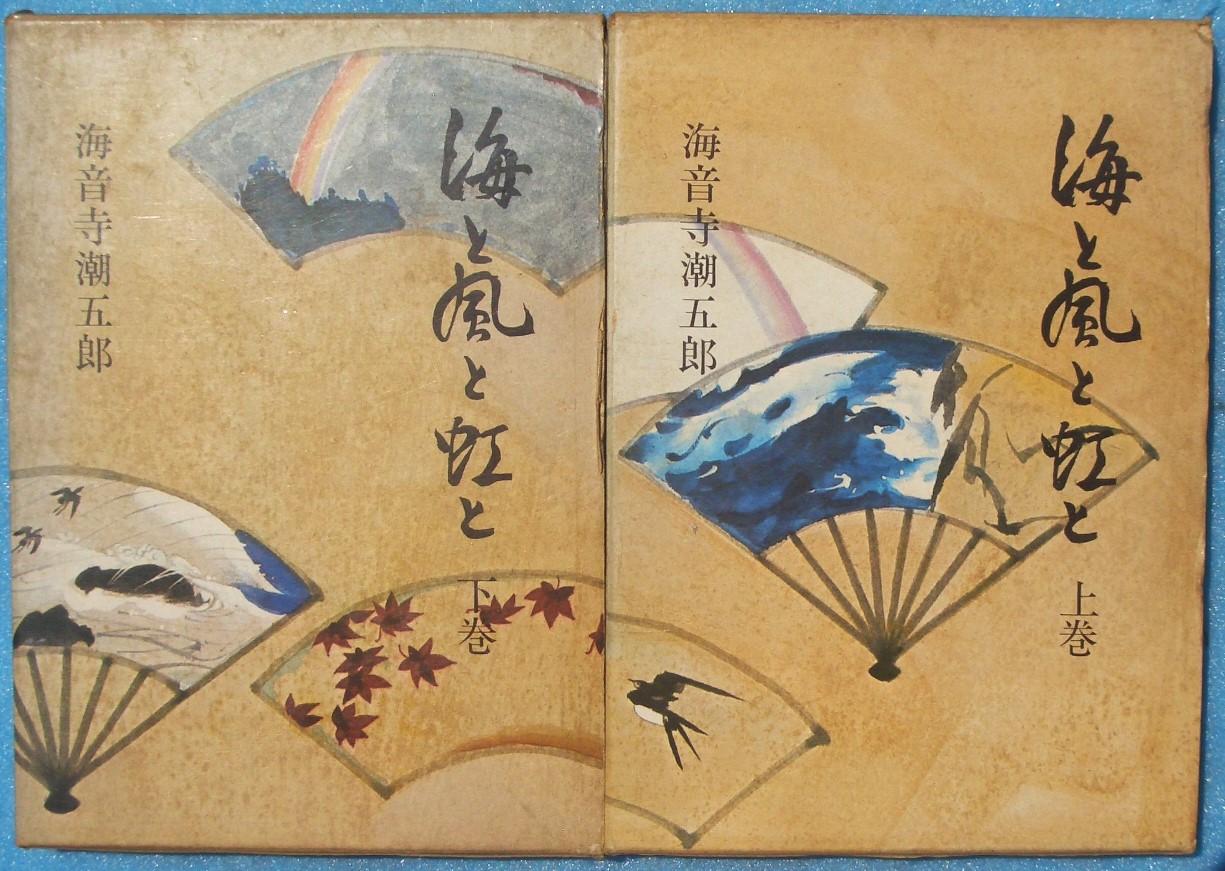 海と風と虹と
上巻
海音寺潮五郎
海と風と虹と
下巻
海音寺潮五郎